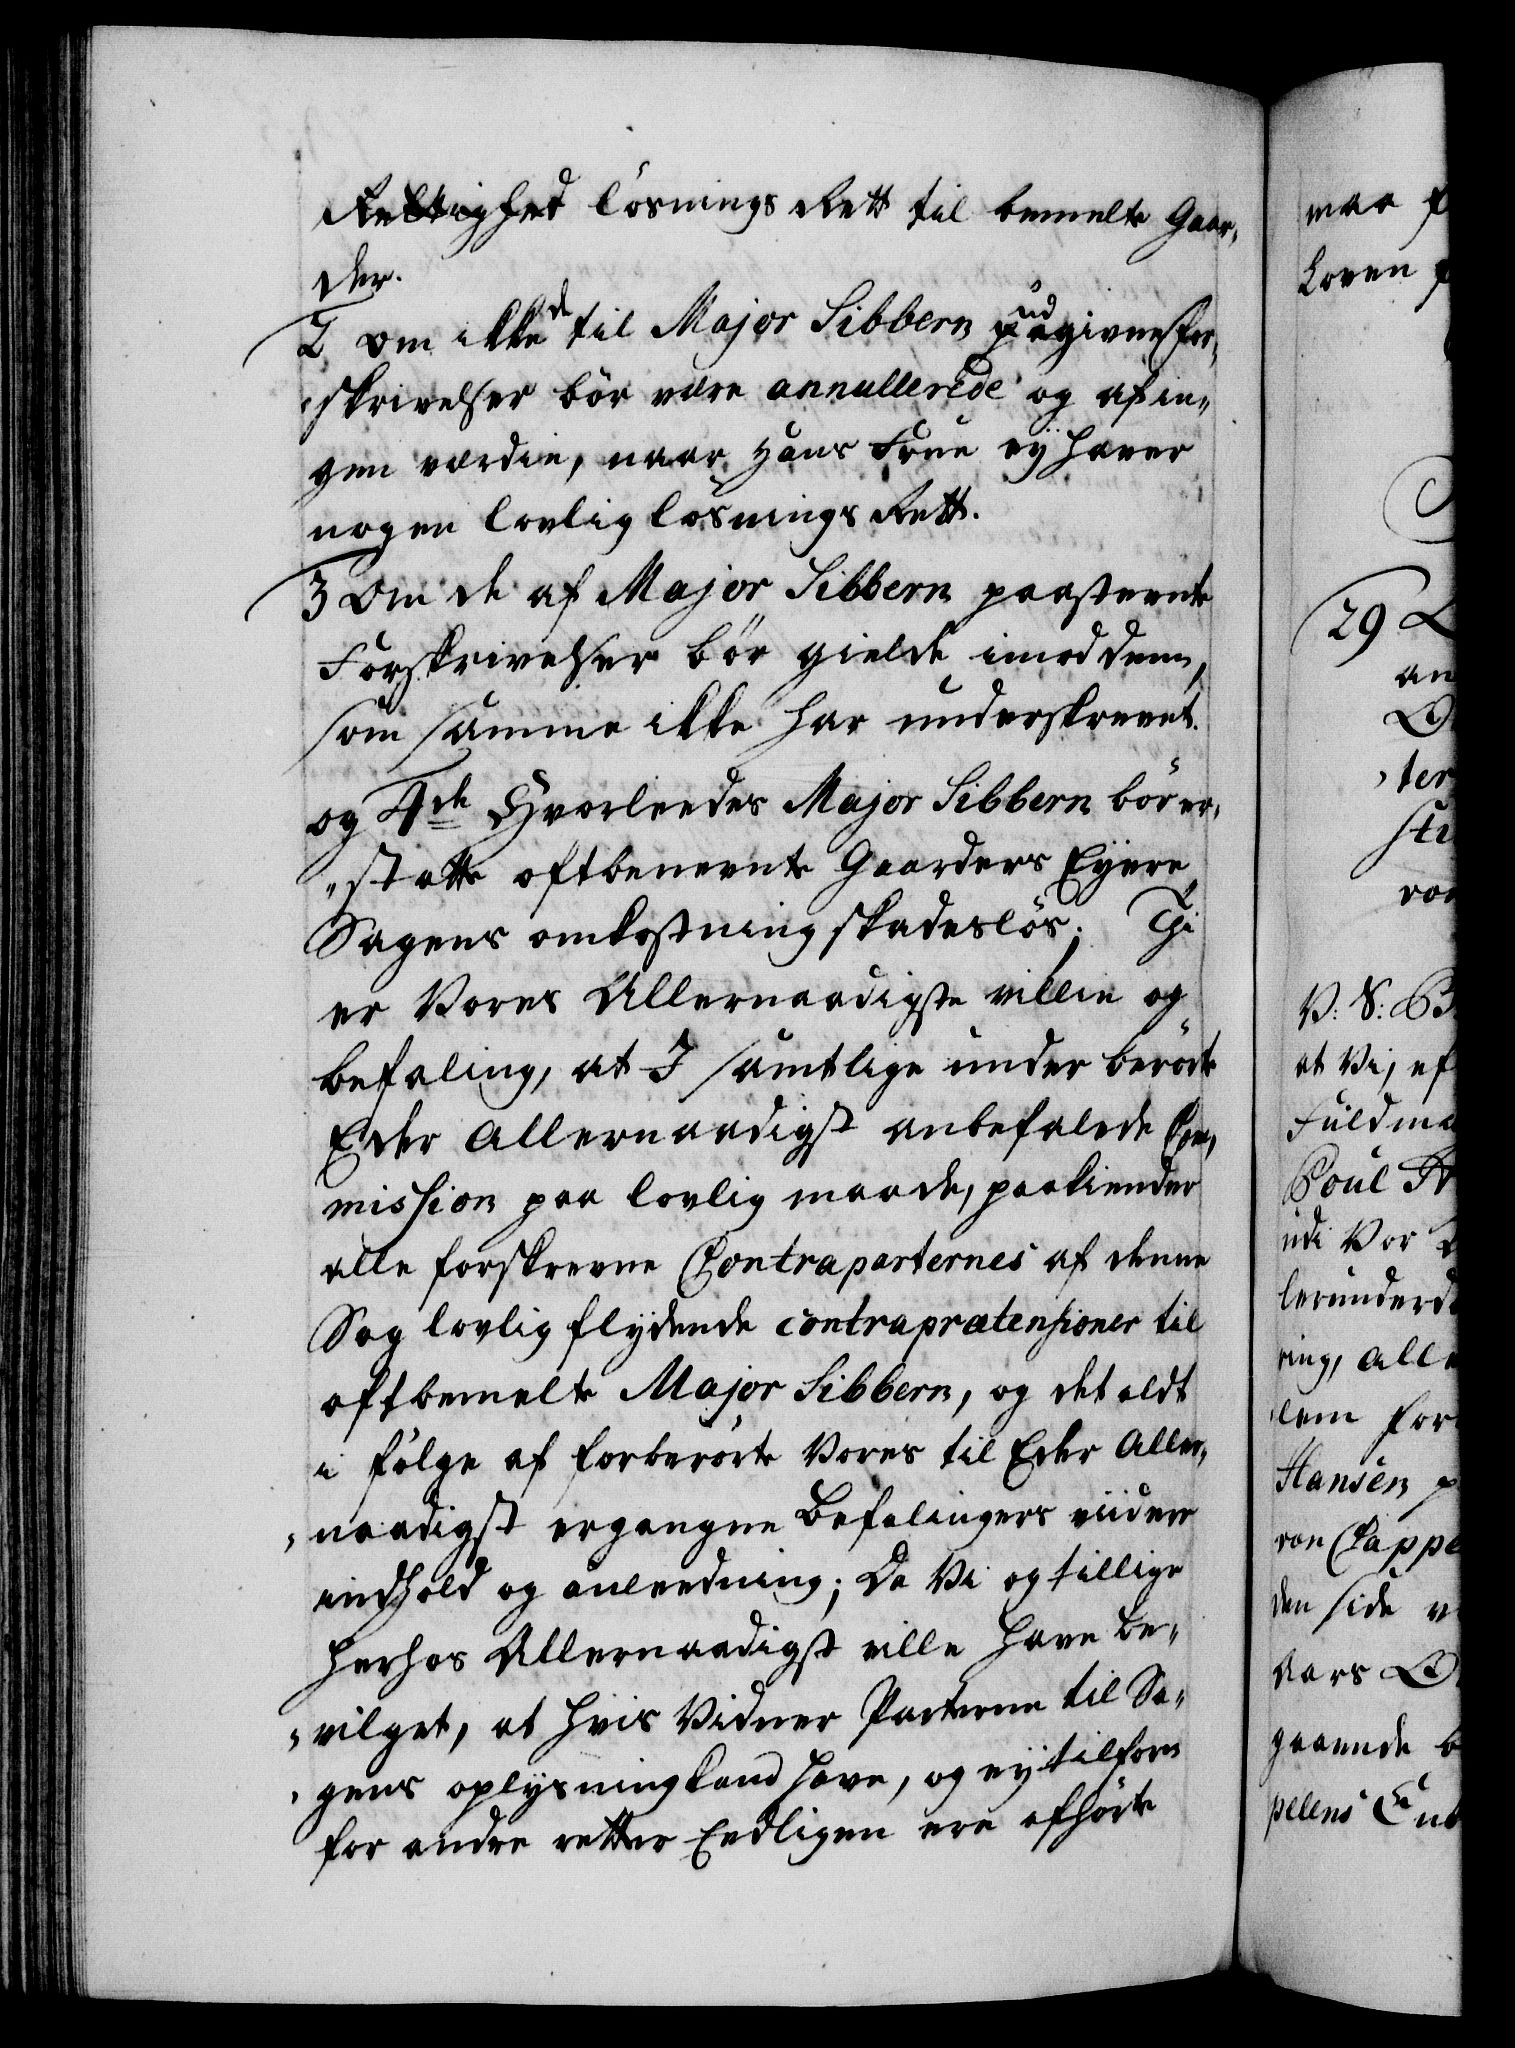 Rettighed lösnings Rett til bemelte Gaar,
der.
2 Om ikke de til Major Sibbern udgivne for,
skrivelser bör være annullerede og af in,,
gen værdie, naar hans Frue ey haver
nogen lovlig lösnings Rett.
3 Om de af Major Sibbern paastevnte
Forskrivelser bör gielde imod dem,
som samme ikke har underskrevet.
og 4de Hvorleedes Major Sibbern bör er,
,,statte oftbenevnte Gaarders Eyere
Sagens omkostning skadeslös; Thi
er Vores Allernaadigste villie og
befaling, at I samtlige under berörte
Eder Allernaadigst anbefalede Com,
mission paa lovlig maade, paakiender
alle forskrevne Contraparternes af denne
Sag lovlig flydende contraprætensioner til
oftbemelte Major Sibbern, og det aldt
i fölge af forberörte Vores til Eder Aller,
,,naadigst ergangne Befalingers viidere
indhold og anleedning; Da Vi og tillige
herhos Allernaadigst ville have be,,
,,vilget, at hvis Vidner Parterne til Sa,,
,,gens oplysning kand have, og ey tilforn
for andre retter Eedligen ere afhörte
maa
Loven
29
an
ter
sti
von
V: S: B
at Vi, ef
Fuldma
Poul
udi Vor
lerunderd
ring, alle
lem for
Hansen p
von Cappe
den side v
Aars
gaaende b
pelens Eut